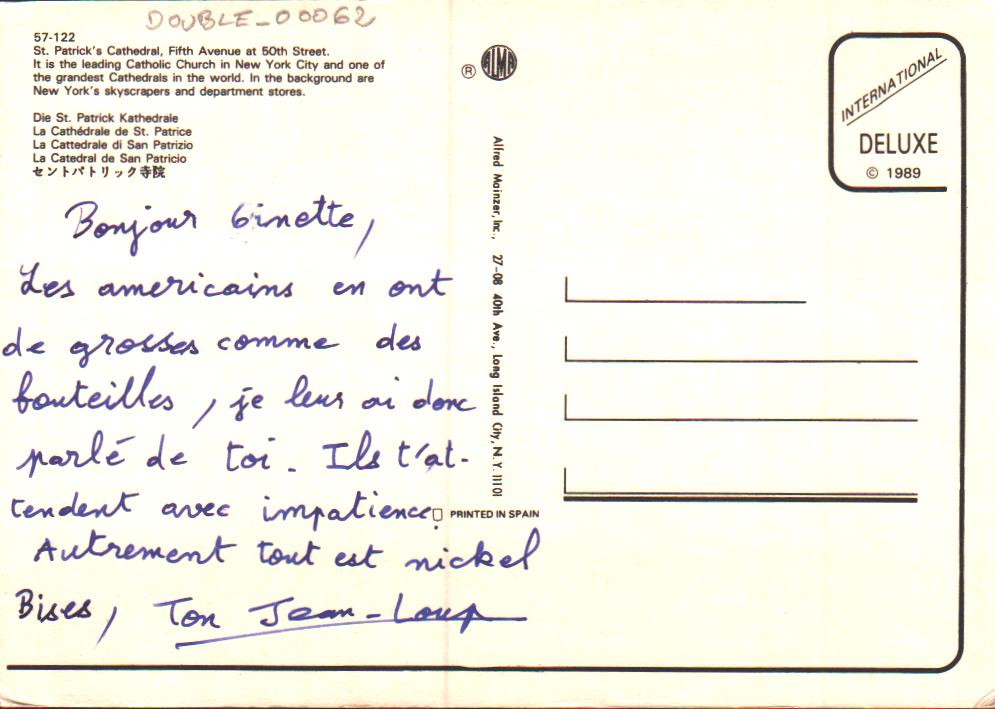 DOUBLE_00062
57-122
St. Patrick's Cathedral, Fifth Avenue at 50th Street.
It is the leading Catholic Church in New York City and one of
the grandest Cathedrals in the world. In the background are
New York's skyscrapers and department stores.
Die St. Patrick Kathedrale
La Cathédrale de St. Patrice
La Cattedrale di San Patrizio
La Catedral de San Patricio
セントパトリック寺院
Bonjour Ginette,
Les americains en ont
de grosses comme des
bouteilles, je leur ai donc
parlé de toi. Ils t'at-
tendent avec impatience
Autrement tout est nickel
Bises, Ton Jean-Loup
® ALMA
Alfred Mainzer, Inc., 27-08 40th Ave., Long Island City, N.Y. 11101
PRINTED IN SPAIN
INTERNATIONAL
DELUXE
© 1989